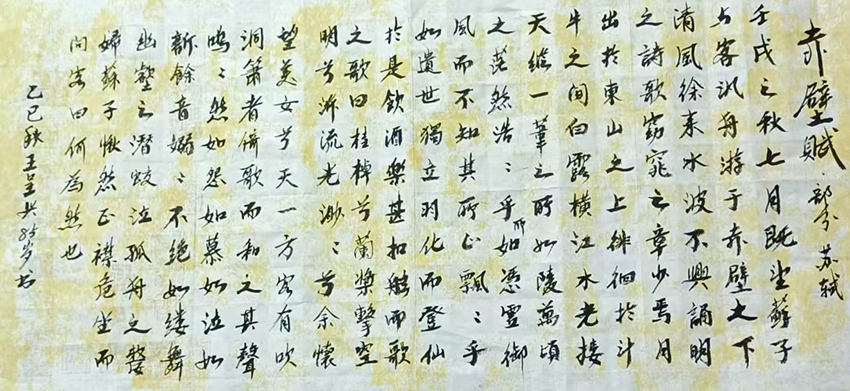 赤壁賦·部分 苏轼
壬戌之秋七月既望蘇子
与客汎舟游于赤壁之下
清風徐来水波不興誦明
之詩歌窈窕之章少焉月
出於東山之上徘徊於斗
牛之间白露横江水光接
天縱一葦之所如陵萬頃
之茫然浩:乎所如憑虚御
風而不知其所止飄:乎
如遺世獨立羽化而登仙
於是飲酒樂甚扣舷而歌
之歌曰桂棹兮蘭槳擊空
明兮泝流光渺:兮余懷
望美女兮天一方客有吹
洞箫者倚歌而和之其聲
鳴:然如怨如慕如泣如
新餘音嫋:不绝如缕舞
幽壑之潜蛟泣孤舟之嫠
婦蘇子愀然正襟危坐而
问客曰何為然也
乙巳秋王呈兴岁书